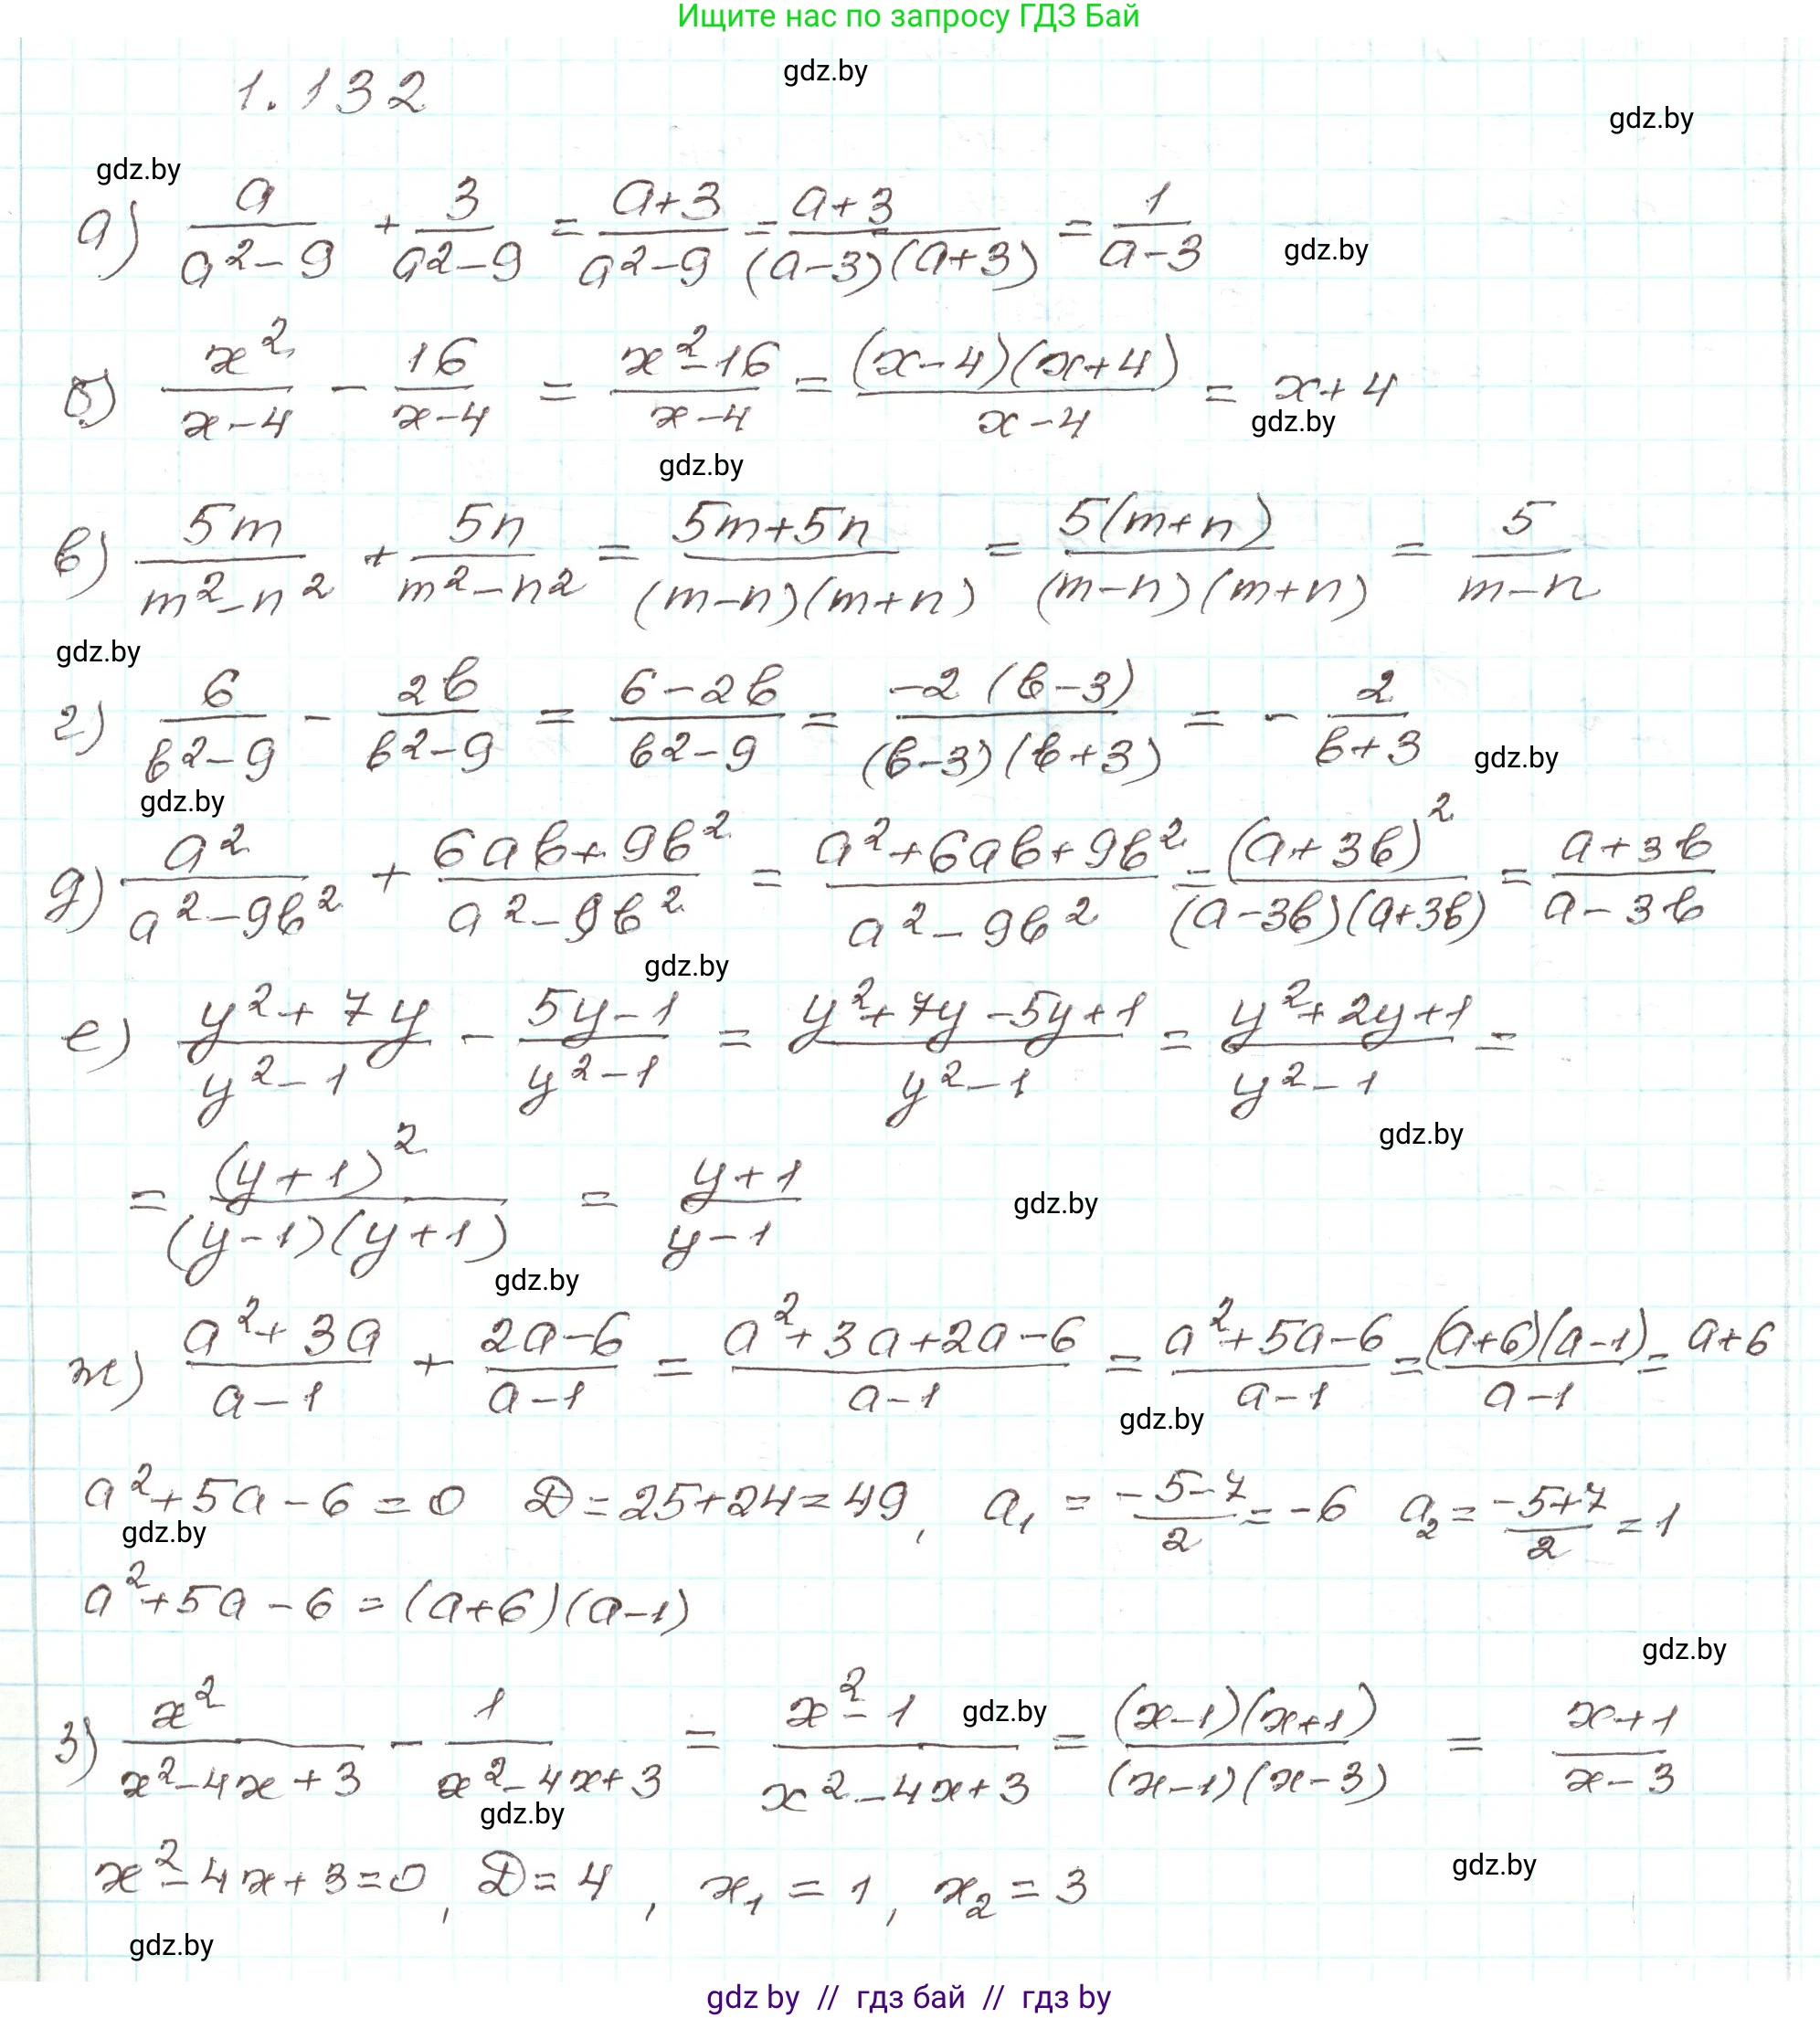 Ищите нас по запросу ГДЗ Бай
gdz.by
1.132
gdz.by
gdz.by
а) a/(a²-9) + 3/(a²-9) = (a+3)/(a²-9) = (a+3)/((a-3)(a+3)) = 1/(a-3)
gdz.by
б) x²/(x-4) - 16/(x-4) = (x²-16)/(x-4) = (x-4)(x+4)/(x-4) = x+4
gdz.by
gdz.by
в) 5m/(m²-n²) + 5n/(m²-n²) = (5m+5n)/((m-n)(m+n)) = 5(m+n)/((m-n)(m+n)) = 5/(m-n)
gdz.by
г) 6/(b²-9) - 2b/(b²-9) = (6-2b)/(b²-9) = -2(b-3)/((b-3)(b+3)) = - 2/(b+3)
gdz.by
gdz.by
д) a²/(a²-9b²) + (6ab+9b²)/(a²-9b²) = (a²+6ab+9b²)/(a²-9b²) = (a+3b)²/((a-3b)(a+3b)) = (a+3b)/(a-3b)
gdz.by
е) (y²+7y)/(y²-1) - (5y-1)/(y²-1) = (y²+7y-5y+1)/(y²-1) = (y²+2y+1)/(y²-1) =
gdz.by
= (y+1)²/((y-1)(y+1)) = (y+1)/(y-1)
gdz.by
gdz.by
ж) (a²+3a)/(a-1) + (2a-6)/(a-1) = (a²+3a+2a-6)/(a-1) = (a²+5a-6)/(a-1) = (a+6)(a-1)/(a-1) = a+6
gdz.by
a²+5a-6=0 D=25+24=49, a₁ = (-5-7)/2 = -6 a₂ = (-5+7)/2 = 1
gdz.by
a²+5a-6=(a+6)(a-1)
gdz.by
з) x²/(x²-4x+3) - 1/(x²-4x+3) = (x²-1)/(x²-4x+3) = (x-1)(x+1)/((x-1)(x-3)) = (x+1)/(x-3)
gdz.by
gdz.by
x²-4x+3=0, D=4, x₁=1, x₂=3
gdz.by
gdz.by
gdz by // гдз бай // гдз by